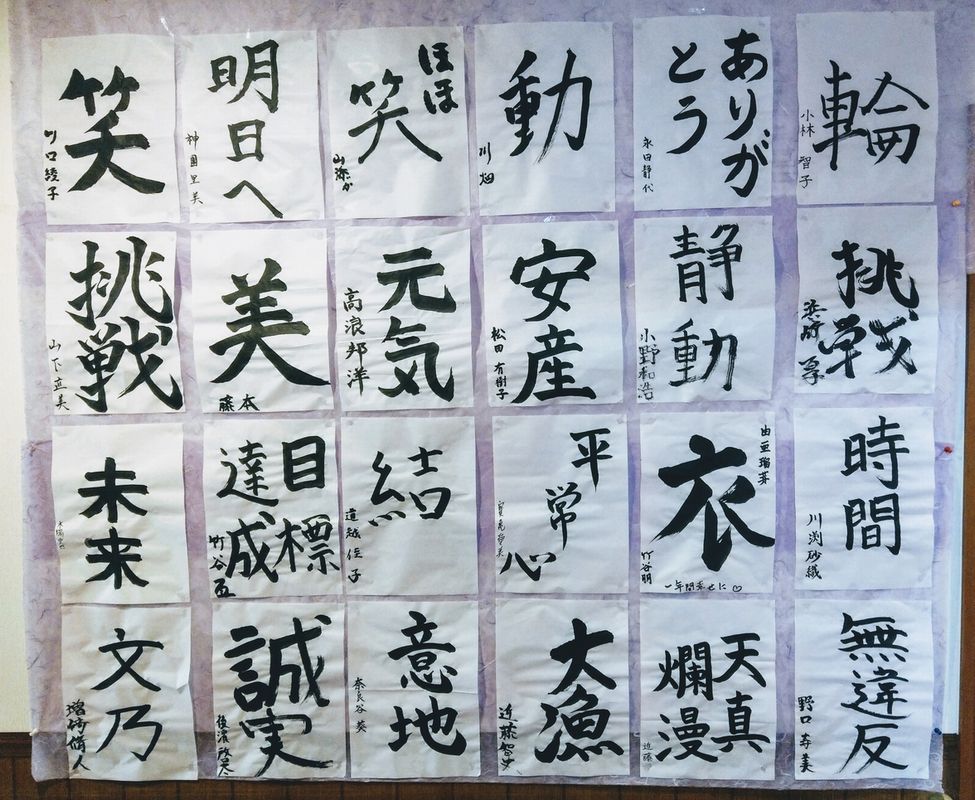 笑
川口綾子
明日へ
神園里美
ほほ
笑
動
川畑
ありが
とう
永田静代
輪
小林 智子
挑戦
山下並美
美
藤本
元気
高浪邦洋
安産
松田有樹子
静動
小野和浩
挑戦
未来
目標
達成
竹谷
結
道越佳子
平常心
由亜瑠芽
衣
竹谷明
一年間幸せに♡
時間
川渕砂織
文乃
誠実
意地
奈良谷 英
大漁
近藤智史
天真
爛漫
近藤
無違反
野口 寿美